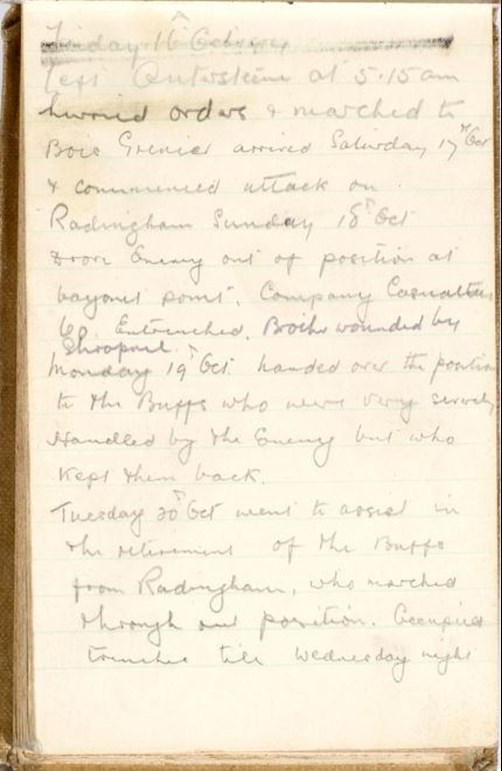 Friday 16th October
left Outersteene at 5.15 am
hurried orders & marched to
Bois Grenier arrived Saturday 17th Oct
& commenced attack on
Radingham Sunday 18th Oct
Drove Enemy out of position at
bayonet point. Company Casualties
60. Entrenched. Brother wounded by
Shrapnel.
Monday 19th Oct handed over the position
to the Buffs who were very severely
Handled by the Enemy but who
Kept them back.
Tuesday 20th Oct went to assist in
the retirement of the Buffs
from Radingham, who marched
through our position. Occupied
trenches till Wednesday night